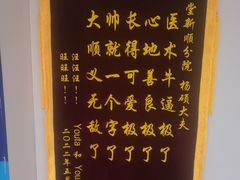 堂新顺分院 杨硕大夫
医术牛逼极了
心地善良极了
长得可爱极了
帅就一个字了
大顺义无敌了
汪汪汪！！
旺旺旺！！
Youta 和 You
二〇二二年五月